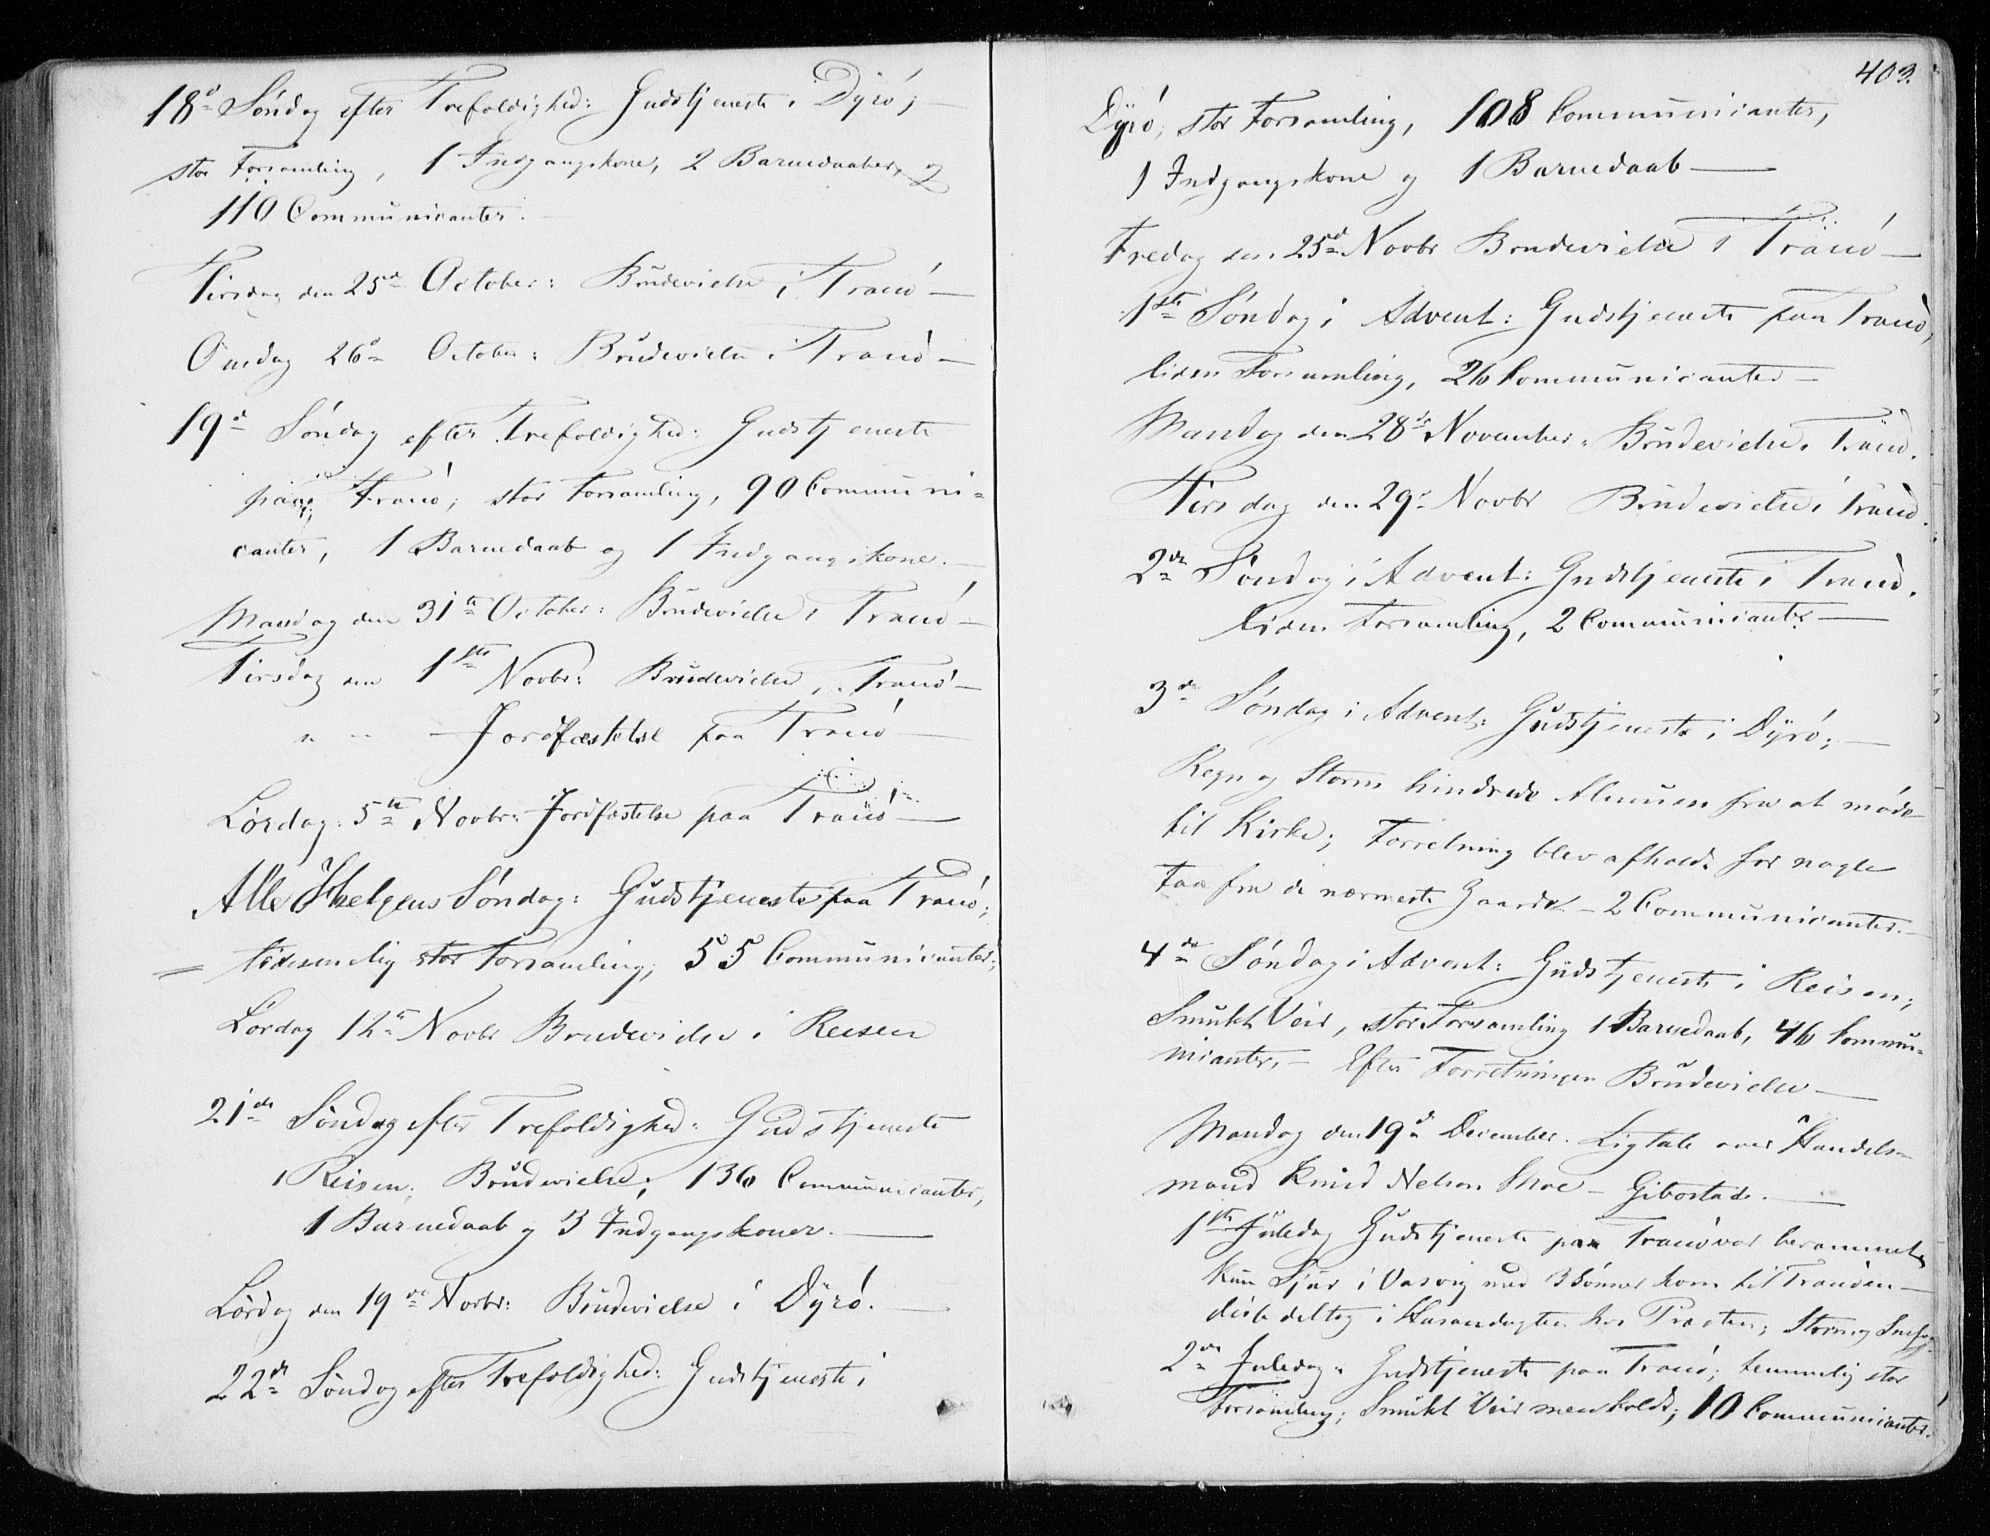 18d Søndag efter Trefoldighed: Gudstjeneste i Dyrö;
stor Forsamling, 1 Indgangskone, 2 Barnedaaber, og
110 Communicanter.
Tirsdag den 25de October: Brudevielse i Tranö
Onsdag 26d October: Brudevielse i Tranö
19d Søndag efter Trefoldighed: Gudstjeneste
paa Tranö; stor Forsamling, 90 Communi-
canter, 1 Barnedaab og 1 Indgangskone.
Mandag den 31te October: Brudevielse i Tranö
Tirsdag den 1ste Novbr: Brudevielse i Tranö
" " Jordfæstelse paa Tranö
Lørdag 5te Novbr: Jordfæstelse paa Tranö
Alle Helgens Søndag: Gudstjeneste paa Tranö;
stor Forsamling; 55 Communicanter;
Lørdag 12te Novbr Brudevielse i Reisen
21de Søndag efter Trefoldighed: Gudstjeneste
i Reisen; Brudevielse; 136 Communicanter,
1 Barnedaab og 3 Indgangskoner.
Lørdag den 19de Novbr: Brudevielse i Dyrö.
22de Søndag efter Trefoldighed: Gudstjeneste i
403.
Dyrö; stor Forsamling, 108 Communicanter,
1 Indgangskone og 1 Barnedaab
Fredag den 25de Novbr Brudevielse i Tranö
1ste Søndag i Advent: Gudstjeneste paa Tranö,
liden Forsamling, 26 Communicanter
Mandag den 28de November: Brudevielse i Tranö.
Tirsdag den 29d Novbr Brudevielse i Tranö.
2den Søndag i Advent: Gudstjeneste i Tranö.
liden Forsamling, 2 Communicanter
3de Søndag i Advent: Gudstjeneste i Dyrö;
Regn og Storm hindrede Almuen fra at møde
til Kirke; Forretning blev afholdt for nogle
faa fra de nærmeste Gaarde - 2 Communicanter.
4de Søndag i Advent: Gudstjeneste i Reisen;
Smukt Veir, stor Forsamling 1 Barnedaab, 46 Commu-
nicanter, - Efter Forretningen Brudevielse
Mandag den 19d December. Ligtale over Handels-
mand Knud Nelson Skoe - Gibostad.
1ste Juledag Gudstjeneste paa Tranö var berammet
kun i Vasvig med 3 Sønner kom til Tranöen
disse deltog i Husandagten hos Præsten; Storm og
2den Juledag: Gudstjeneste paa Tranö; temmelig stor
Forsamling; Smukt Veir men koldt; 10 Communicanter.